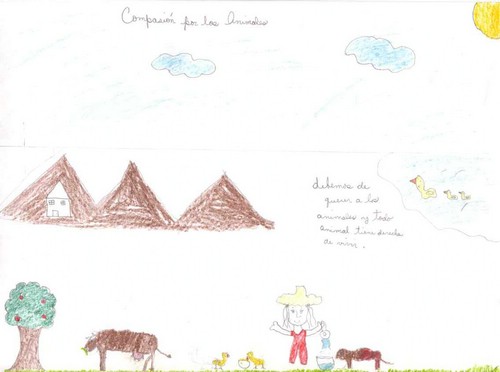 Compasión por los Animales
debemos de
querer a los
animales y todo
animal tiene derecho
de vivir.